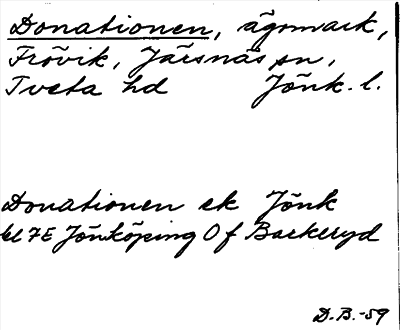 Donationen, ägomark,
Frövik, Järsnäs sn,
Tveta hd Jönk. l.
Donationen ek Jönk
bl 7E Jönköping Of Barkeryd
D.B.-59